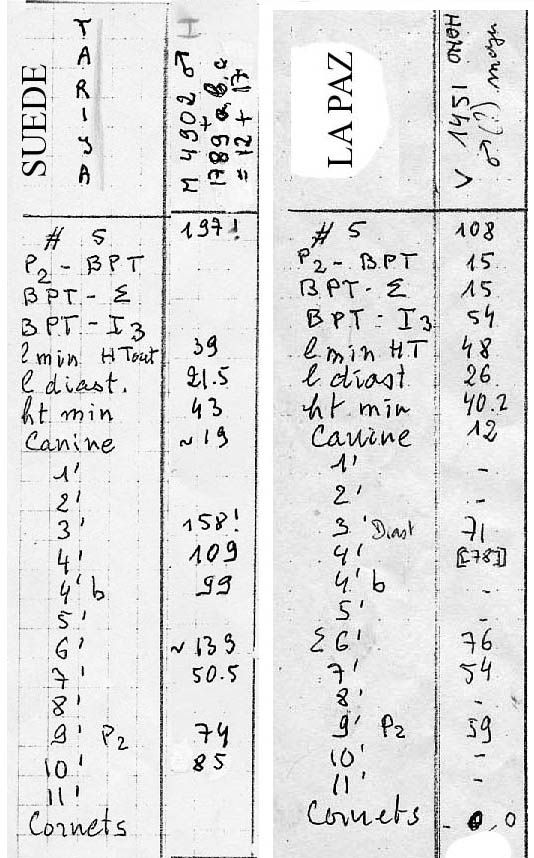 SUEDE
TARIJA
H
M 4902 ♂
1789 a.b.c
= 12 + 17
# 5 197!
P2 - BPT
BPT - Σ
BPT - I3
l min HTout 39
l diast. 21.5
ht min 43
Canine ~19
1'
2'
3' 158!
4' 109
4' b 99
5'
6' ~139
7' 50.5
8'
9' P2 74
10' 85
11'
Cornets
LA PAZ
HOHO
V 1451
♂(?) moyen
# 5 108
P2 - BPT 15
BPT - Σ 15
BPT - I3 54
l min HT 48
l diast 26
ht min 40.2
Canine 12
1' -
2' -
3' Diast 71
4' [[78]]
4' b -
5' -
Σ 6' 76
7' 54
8' -
9' P2 59
10' -
11' -
Cornets